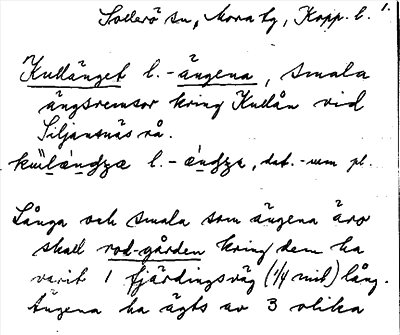 Sollerö sn, Mora tg, Kopp. l. 1.
Kullänget l. - ängena, smala
ängsremsor kring Kullån vid
Siljansnäs rå.
l. - dat. - num pl.
Långa och smala som ängena äro
skall rod-gården kring dem ha
varit 1 fjärdingsväg (1/4 mil) lång.
Ängena ha ägts av 3 olika